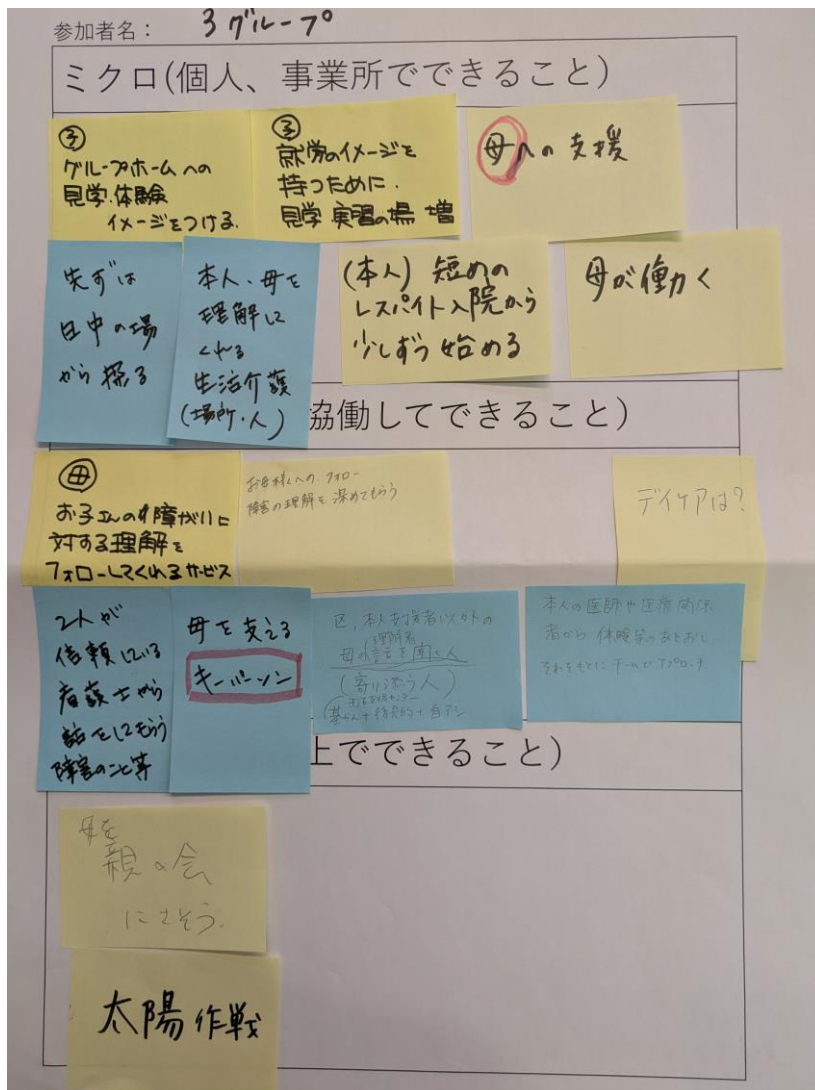 参加者名： 3グループ
ミクロ(個人、事業所でできること)
子
グループホームへの
見学・体験
イメージをつける。
子
就労のイメージを
持つために.
見学 実習の場 増
母への支援
先ずは
日中の場
から探る
本人、母を
理解して
くれる
生活介護
(場所・人)
(本人) 短めの
レスパイト入院から
少しずつ始める
母が働く
協働してできること)
母
お子さんの障がいに
対する理解を
フォローしてくれるサービス
お母様への フォロー
障害の理解を 深めてもらう
デイケアは?
2人が
信頼している
看護士から
話をしてもらう
障害のこと等
母を支える
キーパーソン
区、本人支援者以外の
理解者
母の意を聞く人
(寄り添う人)
本人の医師や医療関係
者から 体験等のあとおし
それをもとに チームでアプローチ
上でできること)
母を
親の会
にさそう.
太陽作戦